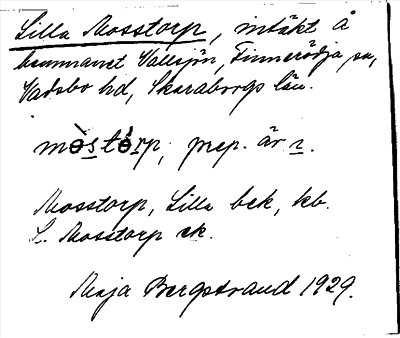 Lilla Mosstorp, intäkt å
hemmanet Vallsjön, Finnerödja sn,
Vadsbo hd, Skaraborgs län.
mòstórp, prep. är i.
Mosstorp, Lilla bek, kb.
L. Mosstorp ek.
Maja Bergstrand 1929.